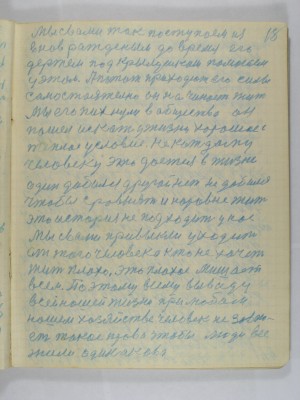 18
Мы с вами так поступаем из
вновь рожденным до время его
держем под крылушком помогаем
у этом. А потом проходют его силы
самостоятельно он начинает жит
Мы его пихнули в общество он
пошел искать жизни хорошое и
теплое условие. Не каждому
человеку это достся в жизни
один добился другой нет не добился
чтобы сровнять и наровне жит
это история не подходит у нас.
Мы с вами привыкли уходить
от того человека кто не хочет
жит плохо, это плохое мишает
всем. Поэтому всему выводу
всей нашей жизни при любом
нашем хозяйстве человек не
ет такое право чтобы люди все
жили одинаково